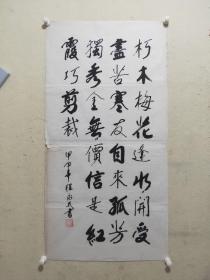 朽木梅花逢水開受
盡苦寒友自來孤芳
獨秀金無價信是紅
霞巧剪裁
甲申年
書